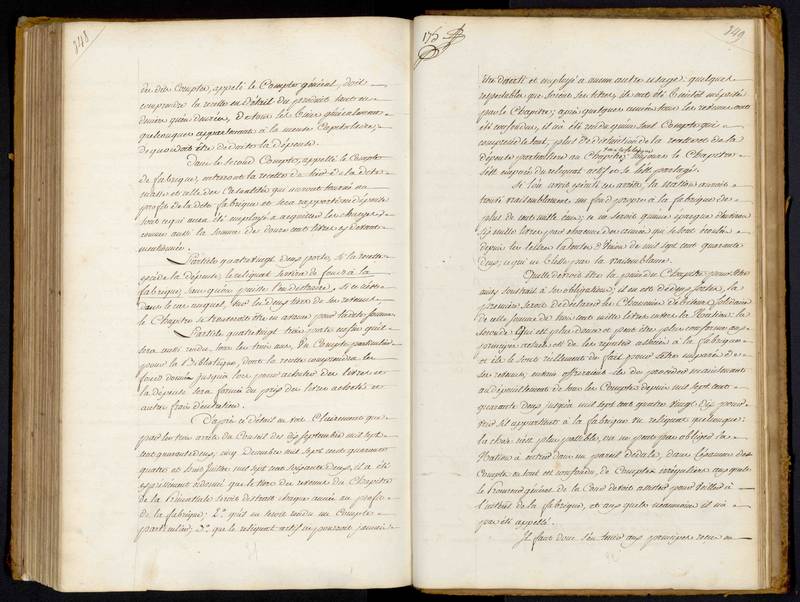 348
de dits Comptes, appelé le Compte général, doit
comprendre la recette en détail du produit tant en
deniers qu'en denrées, de tous les biens généralement
quelconques appartenants à la mense Capitulaire,
de quoi doit être déduite la dépense.
Dans le second Compte, appellé le Compte
de fabrique, entreront la recette du tiers à la déte
et celle des Casualités qui auront tourné au
profit de la dite fabrique et sera rapporté en dépense
tout ce qui aura été employé à acquitter les charges
comme aussi la somme de douze cent livres cy devant
mentionnée.
L'article quatrevingt deux porte, si la recette
excède la dépense, le reliquat servira de fond à la
fabrique, sans qu'on puisse l'en distraire, si ce n'est
dans le cas auquel, les deux tiers de ses retenus,
le Chapitre se trouveroit être en avance pour la dite somme.
L'article quatrevingt trois porte enfin qu'il
sera aussi rendu, tous les trois ans, un Compte particulier
pour la Bibliotèque, dont la recette comprendra les
fonds donnés jusqu'à lors pour acheter des livres et
la dépense sera formée du prix des livres achetés et
autres frais d'entretien.
D'après ce détail on voit clairement que
par les trois arrêts du Conseil des dix septembre mil sept
cent quarante deux, cinq Decembre mil sept cent quarante
quatre et seize Juillet mil sept cent soixante deux, il a été
expressément ordonné que le tiers des revenus du Chapitre
de la Primatiale seroit distrait chaque année au profit
de la fabrique; 2° qu'il en seroit rendu un Compte
particulier; 3° que le reliquat actif ne pourroit jamais
175
349
être diverti et employé à aucun autre usage quelques
respectables que soient ses titres, ils ont été bientôt méprisés
par le Chapitre; après quelques années tous les revenus ont
été confondus, il n'a été rendu qu'un seul Compte qui
comprend le tout, plus de distinction de la recette et de la
dépense particulière au Chapitre, toujours le Chapitre
s'est emparé du reliquat actif et se l'est partagé.
Si l'on avoit exécuté ces arrêts, la Nation auroit
trouvé vraisemblablement un fond propre à la fabrique de
plus de cent mille écus; ce ne seroit qu'une épargne d'environ
six mille livres par chacune des années qui se sont écoulées
depuis les lettres patentes de de mil sept cent quarante
deux; ce qui ne blesse pas la vraisemblance.
Quelle devroit être la peine du Chapitre pour s'être
ainsi soustrait à ses obligations, il en est de deux sortes, la
première seroit de déclarer les Chanoines débiteurs solidaires
de cette somme de trois cent mille livres envers la Nation: la
seconde qui est plus douce et peut être plus conforme aux
principes actuels est de les réputer associés à la fabrique
et s'ils se sont réellement de fait pour s'être emparé de
ses revenus; envain offriroient ils de procéder maintenant
au dépouillement de tous les Comptes depuis mil sept cent
quarante deux jusqu'en mil sept cent quatre vingt dix pour
voir s'il appartient à la fabrique un reliquat quelconque:
la chose n'est plus possible, on ne peut pas obliger la
Nation à entrer dans un pareil dédale, dans l'examen des
Comptes où tout est confondu, de Comptes irréguliers auxquels
le Procureur général de la Cour devoit assister pour veiller à
l'intérêt de la fabrique, et aux quels néanmoins il n'a
pas été appellé.
Il faut donc s'en tenir aux principes reçus en